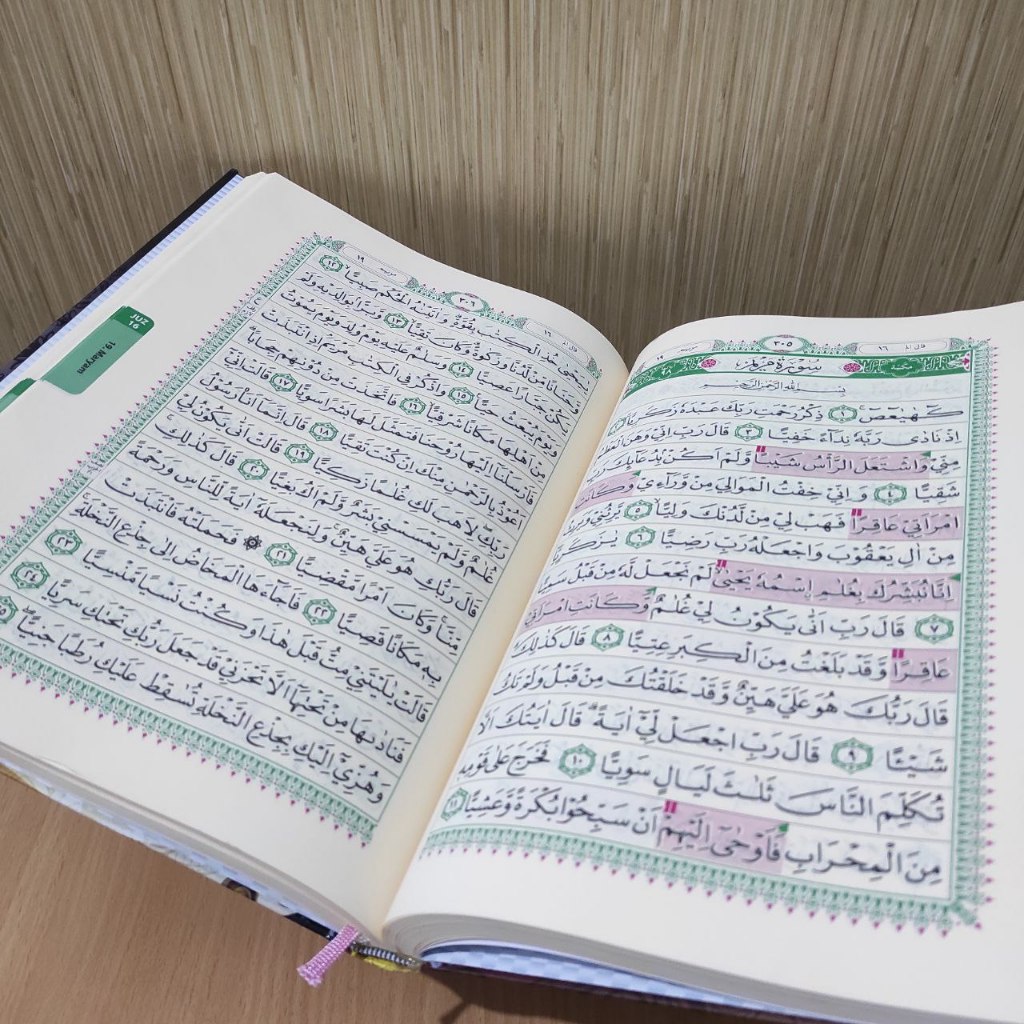 ١٦ قال الم ٣٠٥ ١٩
سورة مريم مكية ٩٨
بِسْمِ اللّٰهِ الرَّحْمٰنِ الرَّحِيْمِ
كۤهٰيٰعۤصۤ ۝١ ذِكْرُ رَحْمَتِ رَبِّكَ عَبْدَهٗ زَكَرِيَّا
اِذْ نَادٰى رَبَّهٗ نِدَاۤءً خَفِيًّا ۝٣ قَالَ رَبِّ اِنِّيْ وَهَنَ
مِنِّيْ وَاشْتَعَلَ الرَّأْسُ شَيْبًا وَّلَمْ اَكُنْۢ بِدُعَاۤىِٕكَ
شَقِيًّا ۝٤ وَاِنِّيْ خِفْتُ الْمَوَالِيَ مِنْ وَّرَاۤءِيْ وَكَانَتِ
امْرَاَتِيْ عَاقِرًا فَهَبْ لِيْ مِنْ لَّدُنْكَ وَلِيًّا ۝٥ يَّرِثُنِيْ
مِنْ اٰلِ يَعْقُوْبَ وَاجْعَلْهُ رَبِّ رَضِيًّا ۝٦
اِنَّا نُبَشِّرُكَ بِغُلٰمِ ِۨاسْمُهٗ يَحْيٰىۙ لَمْ نَجْعَلْ لَّهٗ مِنْ قَبْلُ
۝٧ قَالَ رَبِّ اَنّٰى يَكُوْنُ لِيْ غُلٰمٌ وَّكَانَتِ امْرَاَتِيْ
عَاقِرًا وَّقَدْ بَلَغْتُ مِنَ الْكِبَرِ عِتِيًّا ۝٨ قَالَ كَذٰلِكَ
قَالَ رَبُّكَ هُوَ عَلَيَّ هَيِّنٌ وَّقَدْ خَلَقْتُكَ مِنْ قَبْلُ وَلَمْ تَكُ
شَيْـًٔا ۝٩ قَالَ رَبِّ اجْعَلْ لِّيْٓ اٰيَةً ۗقَالَ اٰيَتُكَ اَلَّا
تُكَلِّمَ النَّاسَ ثَلٰثَ لَيَالٍ سَوِيًّا ۝١٠ فَخَرَجَ عَلٰى قَوْمِهٖ
مِنَ الْمِحْرَابِ فَاَوْحٰٓى اِلَيْهِمْ اَنْ سَبِّحُوْا بُكْرَةً وَّعَشِيًّا ۝١١
١٦ قال الم ٣٠٦ مريم ١٩
يٰيَحْيٰى خُذِ الْكِتٰبَ بِقُوَّةٍ ۗوَاٰتَيْنٰهُ الْحُكْمَ صَبِيًّاۙ ۝١٢
وَّحَنَانًا مِّنْ لَّدُنَّا وَزَكٰوةً ۗوَكَانَ تَقِيًّا ۝١٣ وَّبَرًّاۢ بِوَالِدَيْهِ وَلَمْ
يَكُنْ جَبَّارًا عَصِيًّا ۝١٤ وَسَلٰمٌ عَلَيْهِ يَوْمَ وُلِدَ وَيَوْمَ يَمُوْتُ
وَيَوْمَ يُبْعَثُ حَيًّا ۝١٥ وَاذْكُرْ فِى الْكِتٰبِ مَرْيَمَۘ اِذِ انْتَبَذَتْ
مِنْ اَهْلِهَا مَكَانًا شَرْقِيًّا ۝١٦ فَاتَّخَذَتْ مِنْ دُوْنِهِمْ حِجَابًا
فَاَرْسَلْنَآ اِلَيْهَا رُوْحَنَا فَتَمَثَّلَ لَهَا بَشَرًا سَوِيًّا ۝١٧ قَالَتْ اِنِّيْٓ
اَعُوْذُ بِالرَّحْمٰنِ مِنْكَ اِنْ كُنْتَ تَقِيًّا ۝١٨ قَالَ اِنَّمَآ اَنَا۠ رَسُوْلُ
رَبِّكِ لِاَهَبَ لَكِ غُلٰمًا زَكِيًّا ۝١٩ قَالَتْ اَنّٰى يَكُوْنُ لِيْ
غُلٰمٌ وَّلَمْ يَمْسَسْنِيْ بَشَرٌ وَّلَمْ اَكُ بَغِيًّا ۝٢٠ قَالَ كَذٰلِكِ
قَالَ رَبُّكِ هُوَ عَلَيَّ هَيِّنٌۚ وَلِنَجْعَلَهٗٓ اٰيَةً لِّلنَّاسِ وَرَحْمَةً
مِّنَّاۚ وَكَانَ اَمْرًا مَّقْضِيًّا ۝٢١ ۞ فَحَمَلَتْهُ فَانْتَبَذَتْ
بِهٖ مَكَانًا قَصِيًّا ۝٢٢ فَاَجَاۤءَهَا الْمَخَاضُ اِلٰى جِذْعِ النَّخْلَةِۚ
قَالَتْ يٰلَيْتَنِيْ مِتُّ قَبْلَ هٰذَا وَكُنْتُ نَسْيًا مَّنْسِيًّا ۝٢٣
فَنَادٰىهَا مِنْ تَحْتِهَآ اَلَّا تَحْزَنِيْ قَدْ جَعَلَ رَبُّكِ تَحْتَكِ سَرِيًّا ۝٢٤
وَهُزِّيْٓ اِلَيْكِ بِجِذْعِ النَّخْلَةِ تُسٰقِطْ عَلَيْكِ رُطَبًا جَنِيًّاۖ
JUZ
16
19. Maryam